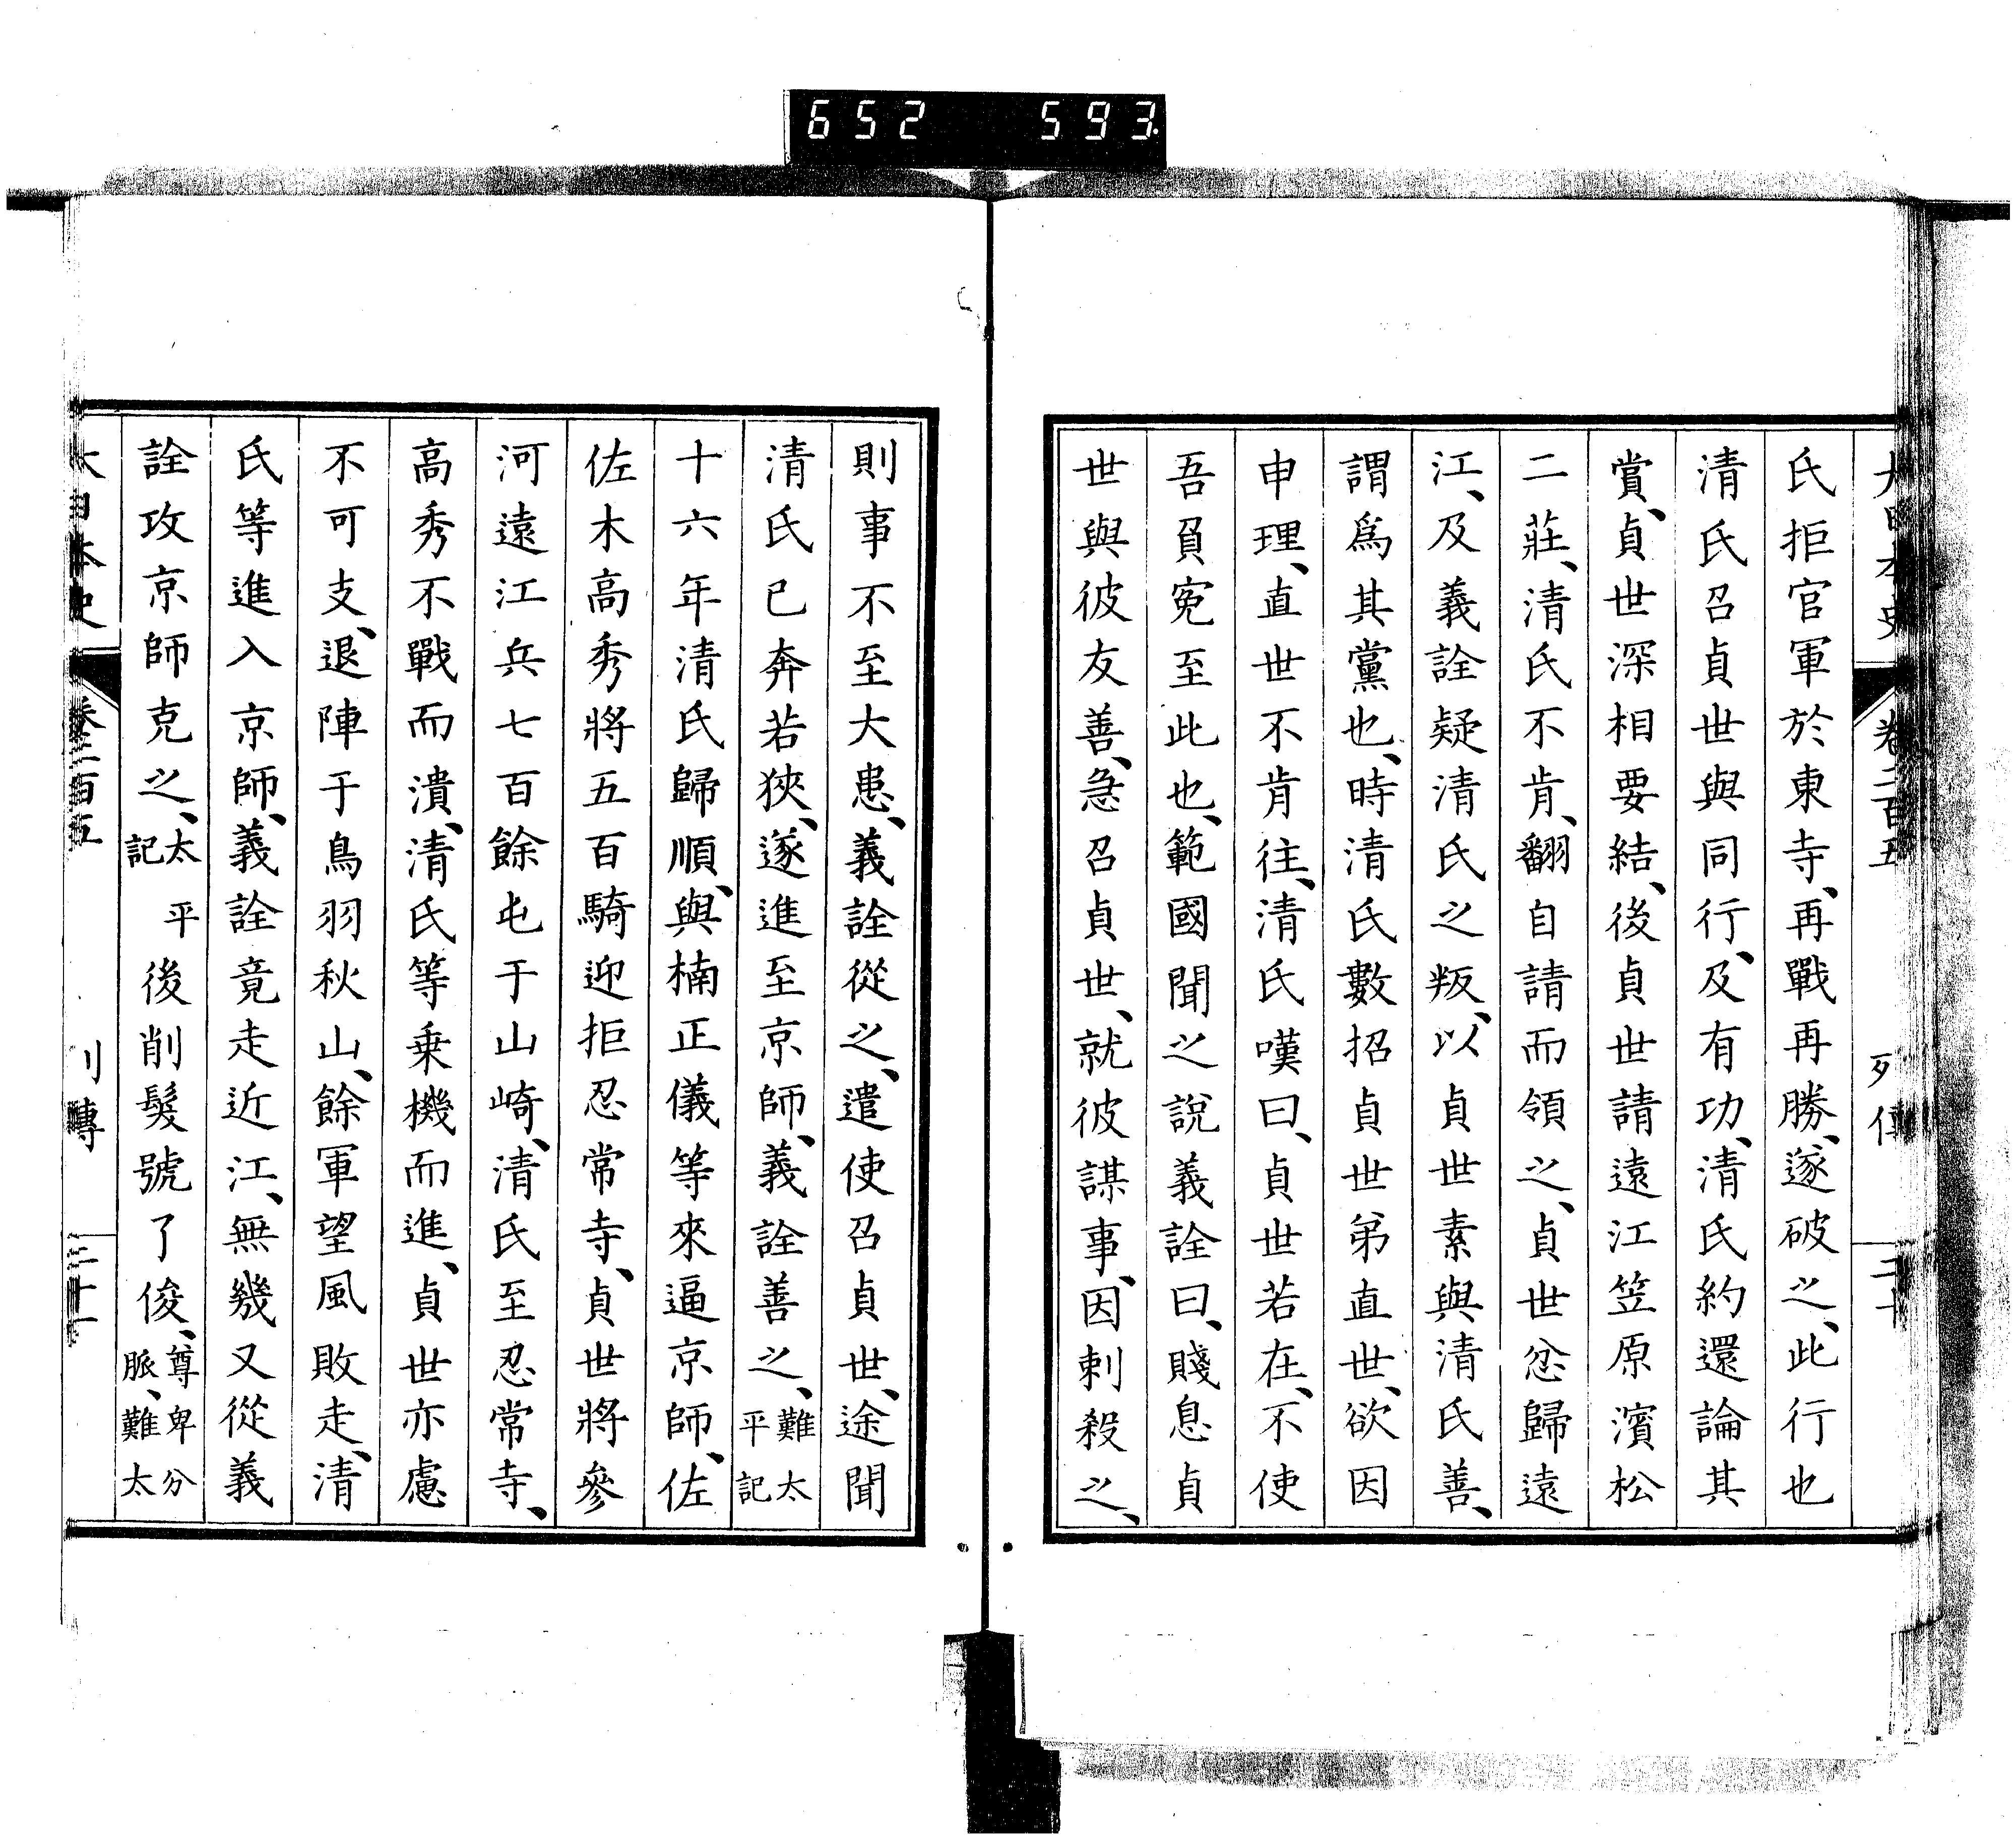 652 593
大日本史 卷二百五 列傳 二十
氏拒官軍於東寺、再戰再勝、遂破之、此行也
清氏召貞世與同行、及有功、清氏約還論其
賞、貞世深相要結、後貞世請遠江笠原濱松
二莊、清氏不肯、翻自請而領之、貞世忿歸遠
江、及義詮疑清氏之叛、以貞世素與清氏善、
謂爲其黨也、時清氏數招貞世弟直世、欲因
申理、直世不肯往、清氏嘆曰、貞世若在、不使
吾負寃至此也、範國聞之說義詮曰、賤息貞
世與彼友善、急召貞世、就彼謀事、因刺殺之、
則事不至大患、義詮從之、遣使召貞世、途聞
清氏已奔若狹、遂進至京師、義詮善之、難太
平記
十六年清氏歸順、與楠正儀等來逼京師、佐
佐木高秀將五百騎迎拒忍常寺、貞世將參
河遠江兵七百餘屯于山崎、清氏至忍常寺、
高秀不戰而潰、清氏等乗機而進、貞世亦慮
不可支、退陣于鳥羽秋山、餘軍望風敗走、清
氏等進入京師、義詮竟走近江、無幾又從義
詮攻京師克之、太平
記後削髮號了俊、尊卑分
脈、難太
大日本史 卷二百五 列傳 二十一